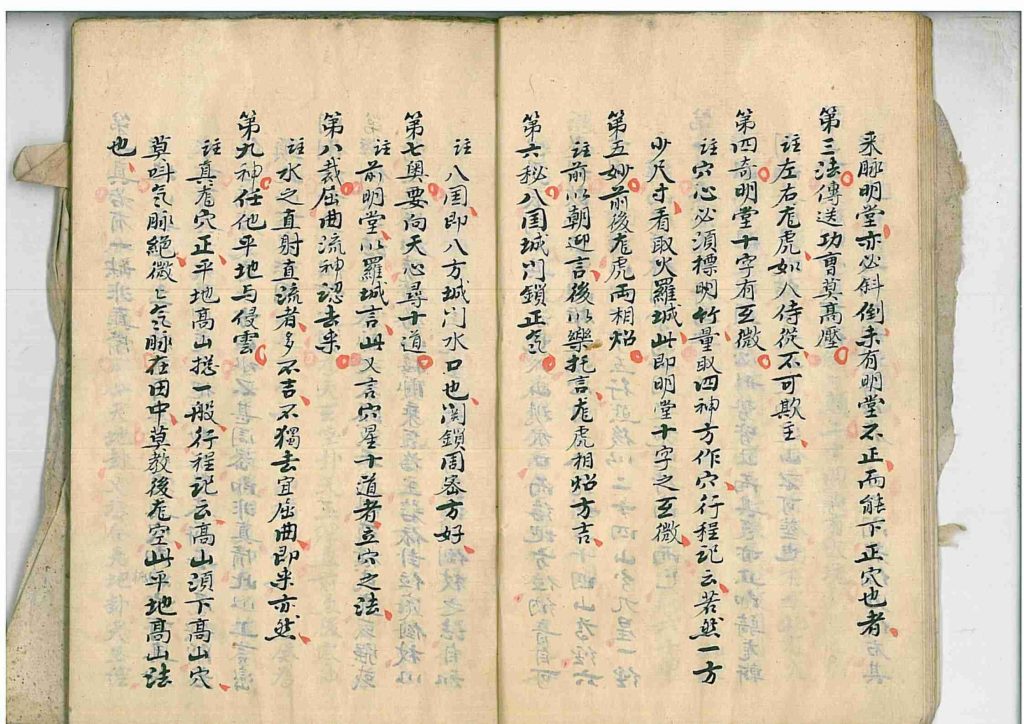 来脉明堂亦必斜倒未有明堂不正而能下正穴也者
第三法傳送功曹莫高壓
註左右龙虎如人侍從不可欺主
第四奇明堂十字有玄微
註穴心必須標明竹量取四神方作穴行程記云若然一方
少尺寸看取火羅城此即明堂十字之玄微
第五妙前後龙虎兩相炤
註前以朝迎言後以樂托言龙虎相炤方吉
第六秘八国城门鎖正气
註八国即八方城门水口也関鎖周宻方好
第七奥要向天心尋十道
註前明堂以羅城言此又言穴星十道者立穴之法
第八裁屈曲流神認去来
註水之直射直流者多不吉不獨去宜屈曲即来亦然
第九神任他平地与侵雲
註真龙穴正平地高山揔一般行程記云高山頂下高山穴
莫呌气脉絕微〻气脉在田中草教後龙空此平地高山法
也